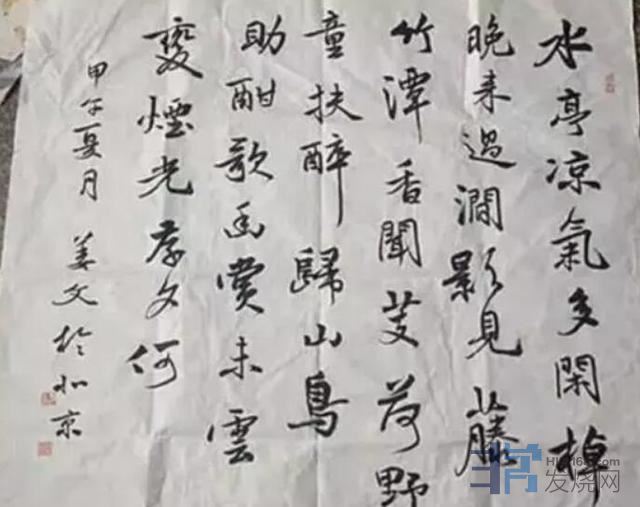 水亭凉氣多閑棹
晚来過澗影見藤
竹潭香聞芰荷野
童扶醉歸山鳥
助酣歌幽賞未雲
變煙光奈夕何
甲午夏月 姜文於北京
发烧网